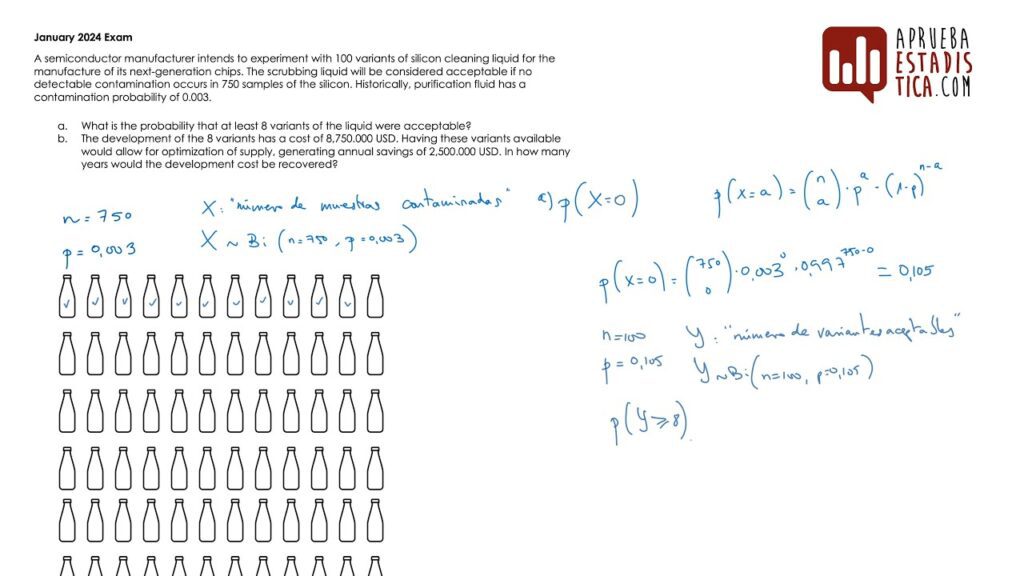 January 2024 Exam
A semiconductor manufacturer intends to experiment with 100 variants of silicon cleaning liquid for the
manufacture of its next-generation chips. The scrubbing liquid will be considered acceptable if no
detectable contamination occurs in 750 samples of the silicon. Historically, purification fluid has a
contamination probability of 0.003.
a. What is the probability that at least 8 variants of the liquid were acceptable?
b. The development of the 8 variants has a cost of 8,750.000 USD. Having these variants available
would allow for optimization of supply, generating annual savings of 2,500.000 USD. In how many
years would the development cost be recovered?
APRUEBA
ESTADIS
TICA.COM
n = 750
p = 0,003
X: "número de muestras contaminadas"
X ~ Bi (n=750, p=0,003)
a) p(X=0)
p(X=a) = (n a) · p^a · (1-p)^n-a
p(X=0) = (750 0) · 0,003^0 · 0,997^750-0 = 0,105
n=100
p = 0,105
Y: "número de variantes aceptables"
Y~Bi(n=100, p=0,105)
p(Y≥8)